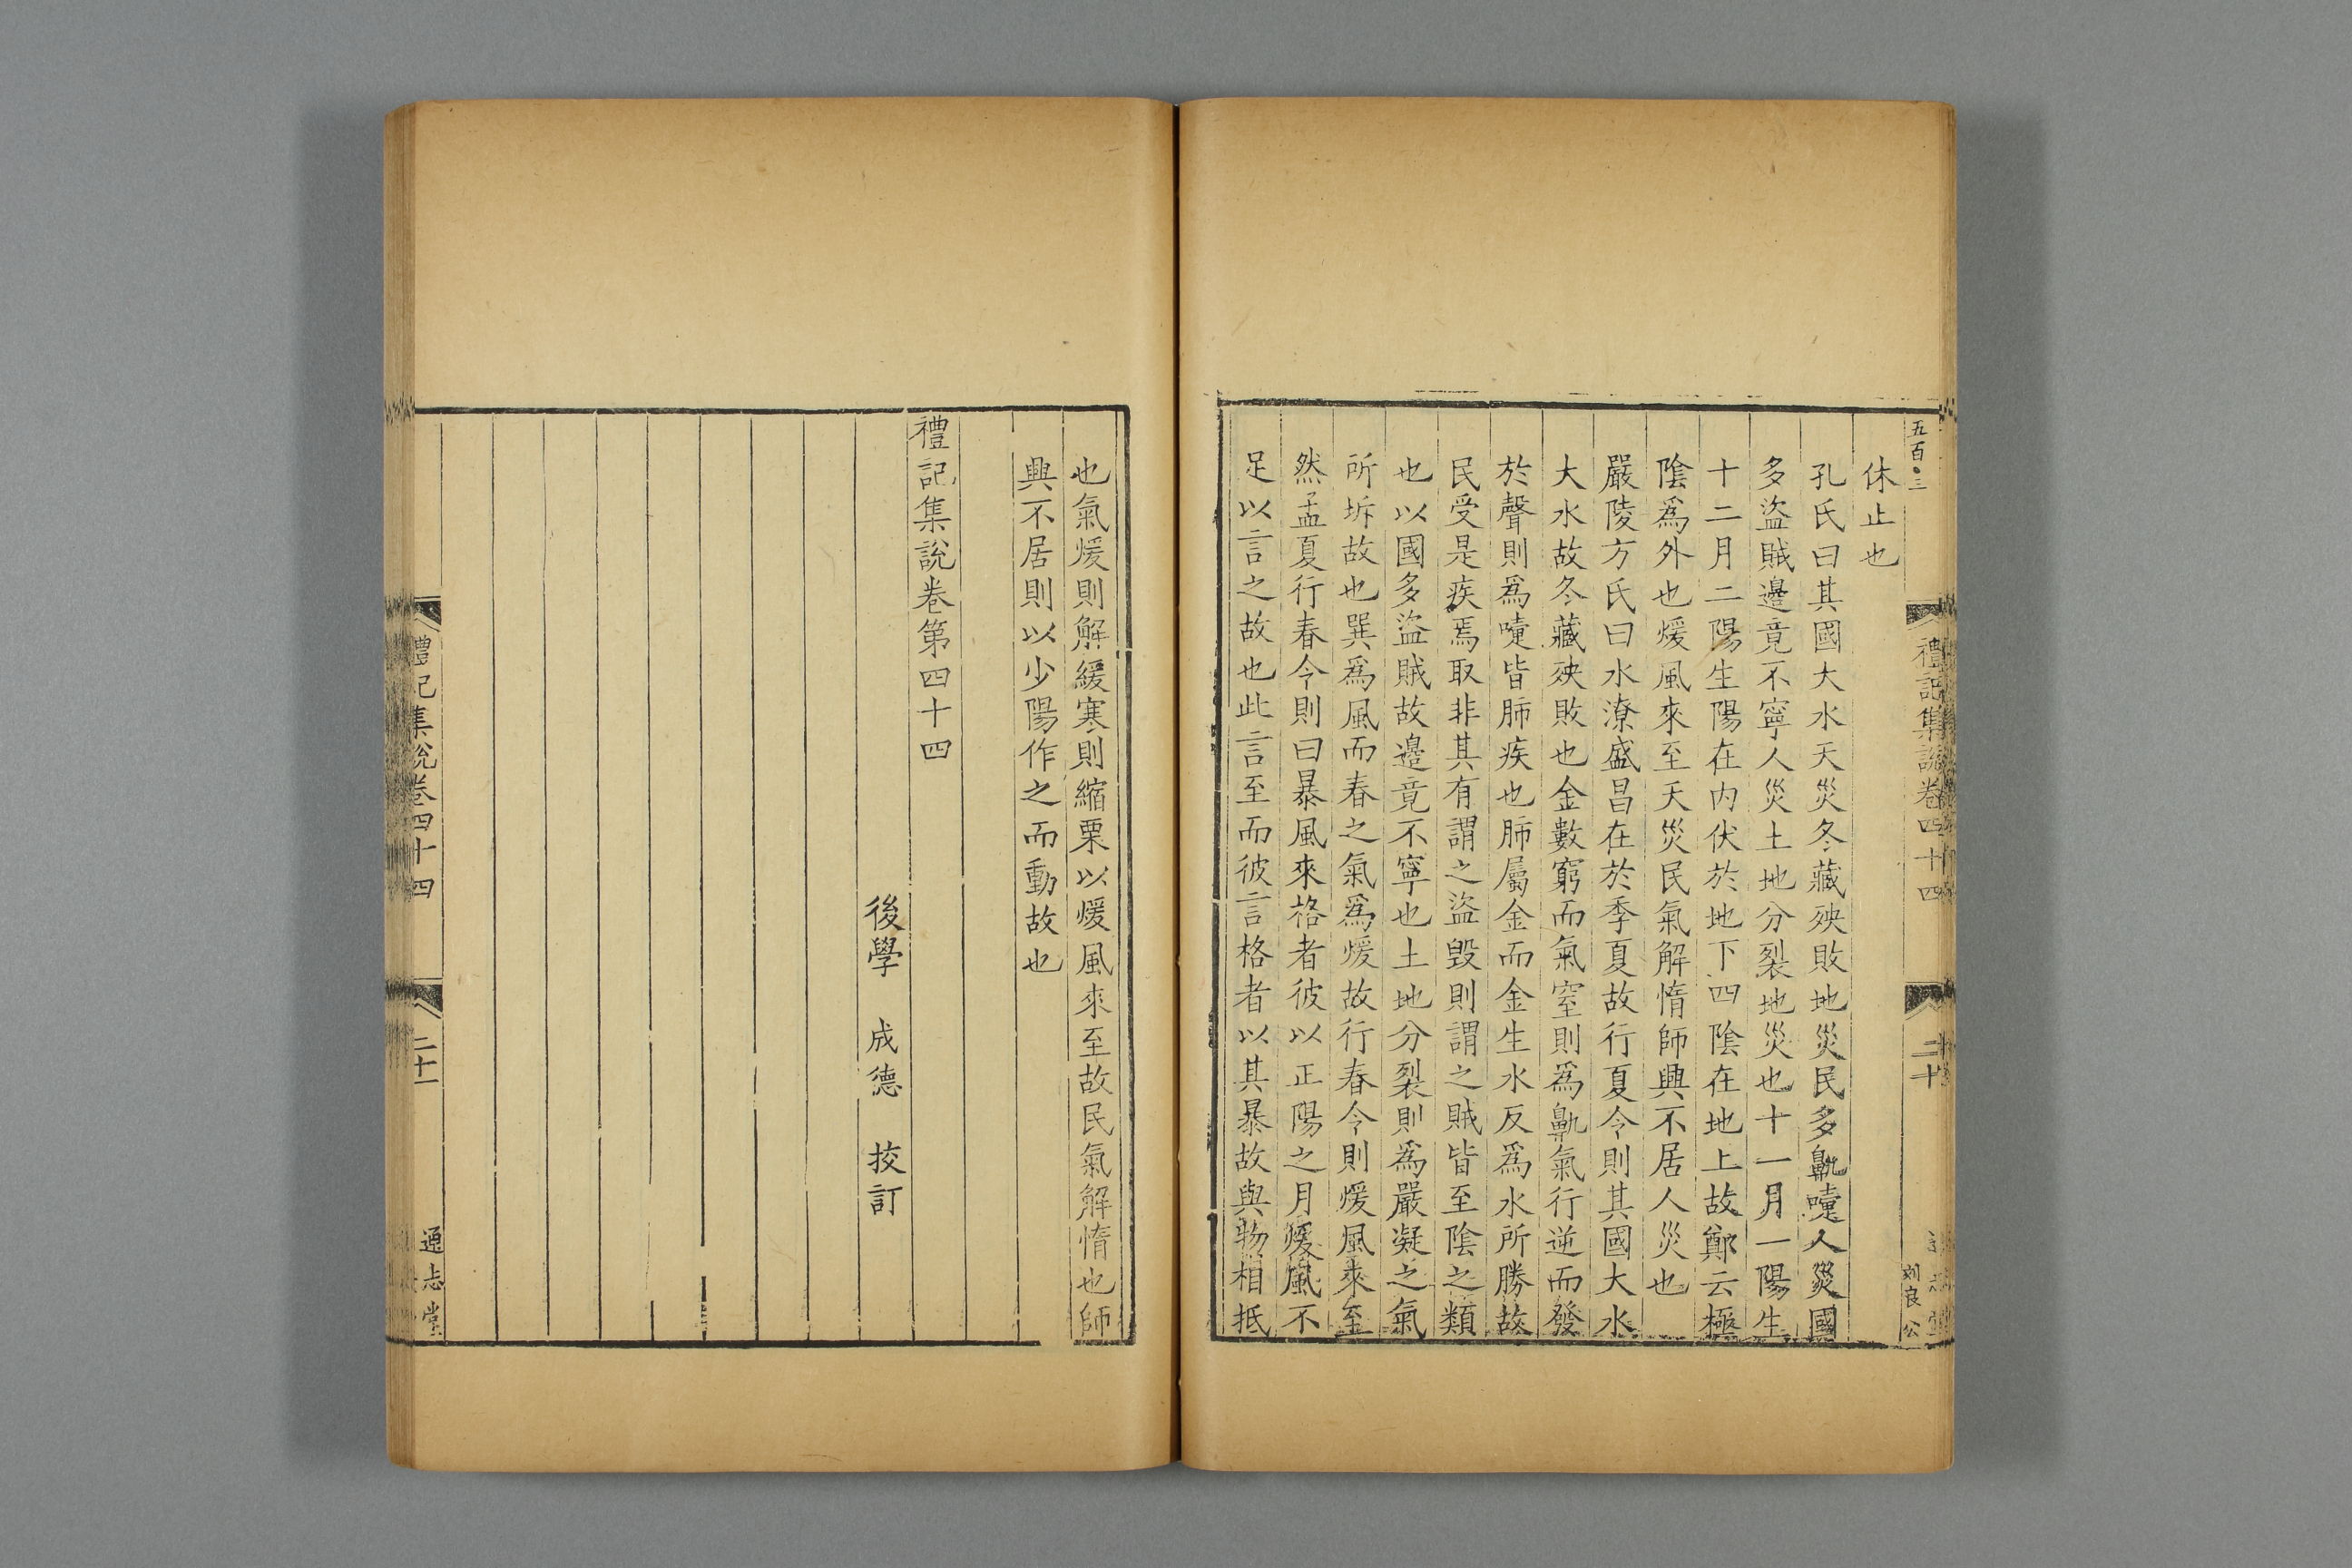 五百三
禮記集說卷四十四
二十
刘良公
休止也
孔氏曰其國大水天災冬藏殃敗地災民多鼽嚏人災國
多盜賊邊竟不寧人災土地分裂地災也十一月一陽生
十二月二陽生陽在内伏於地下四陰在地上故鄭云極
陰爲外也煖風來至天災民氣解惰師興不居人災也
嚴陵方氏曰水潦盛昌在於季夏故行夏令則其國大水
大水故冬藏殃敗也金數窮而氣窒則爲鼽氣行逆而發
於聲則爲嚏皆肺疾也肺屬金而金生水反爲水所勝故
民受是疾焉取非其有謂之盜毀則謂之賊皆至陰之類
也以國多盜賊故邊竟不寧也土地分裂則爲嚴凝之氣
所坼故也巽爲風而春之氣爲煖故行春令則煖風來至
然孟夏行春令則曰暴風來格者彼以正陽之月煖風不
足以言之故也此言至而彼言格者以其暴故與物相抵
也氣煖則解緩寒則縮栗以煖風來至故民氣解惰也師
興不居則以少陽作之而動故也
禮記集說卷第四十四
後學 成德 挍訂
禮記集說卷四十四
二十一
通志堂